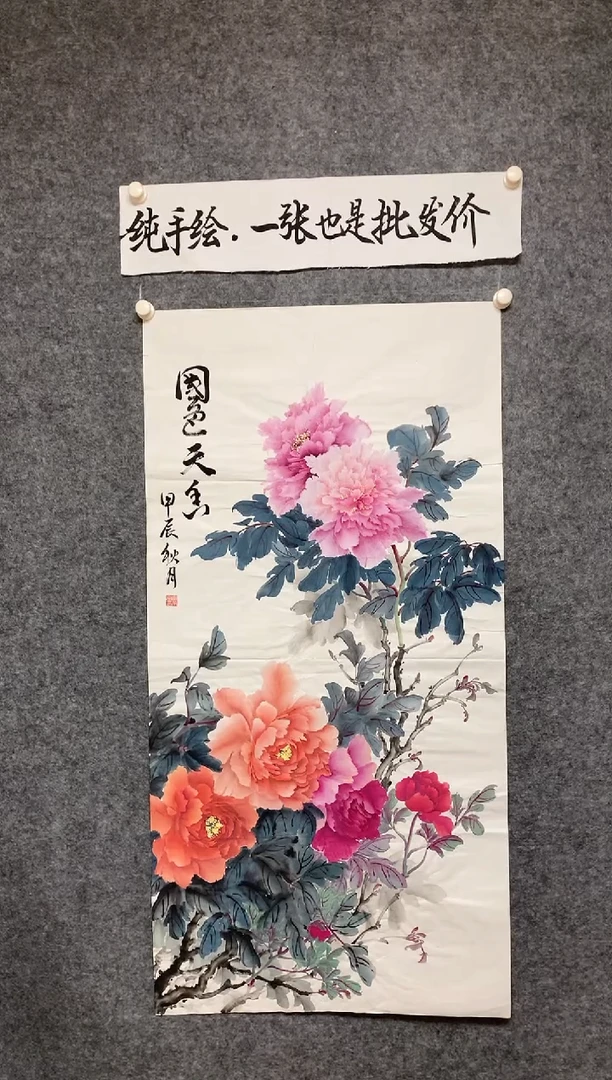 纯手绘.一张也是批发价
國色天香
甲辰秋月